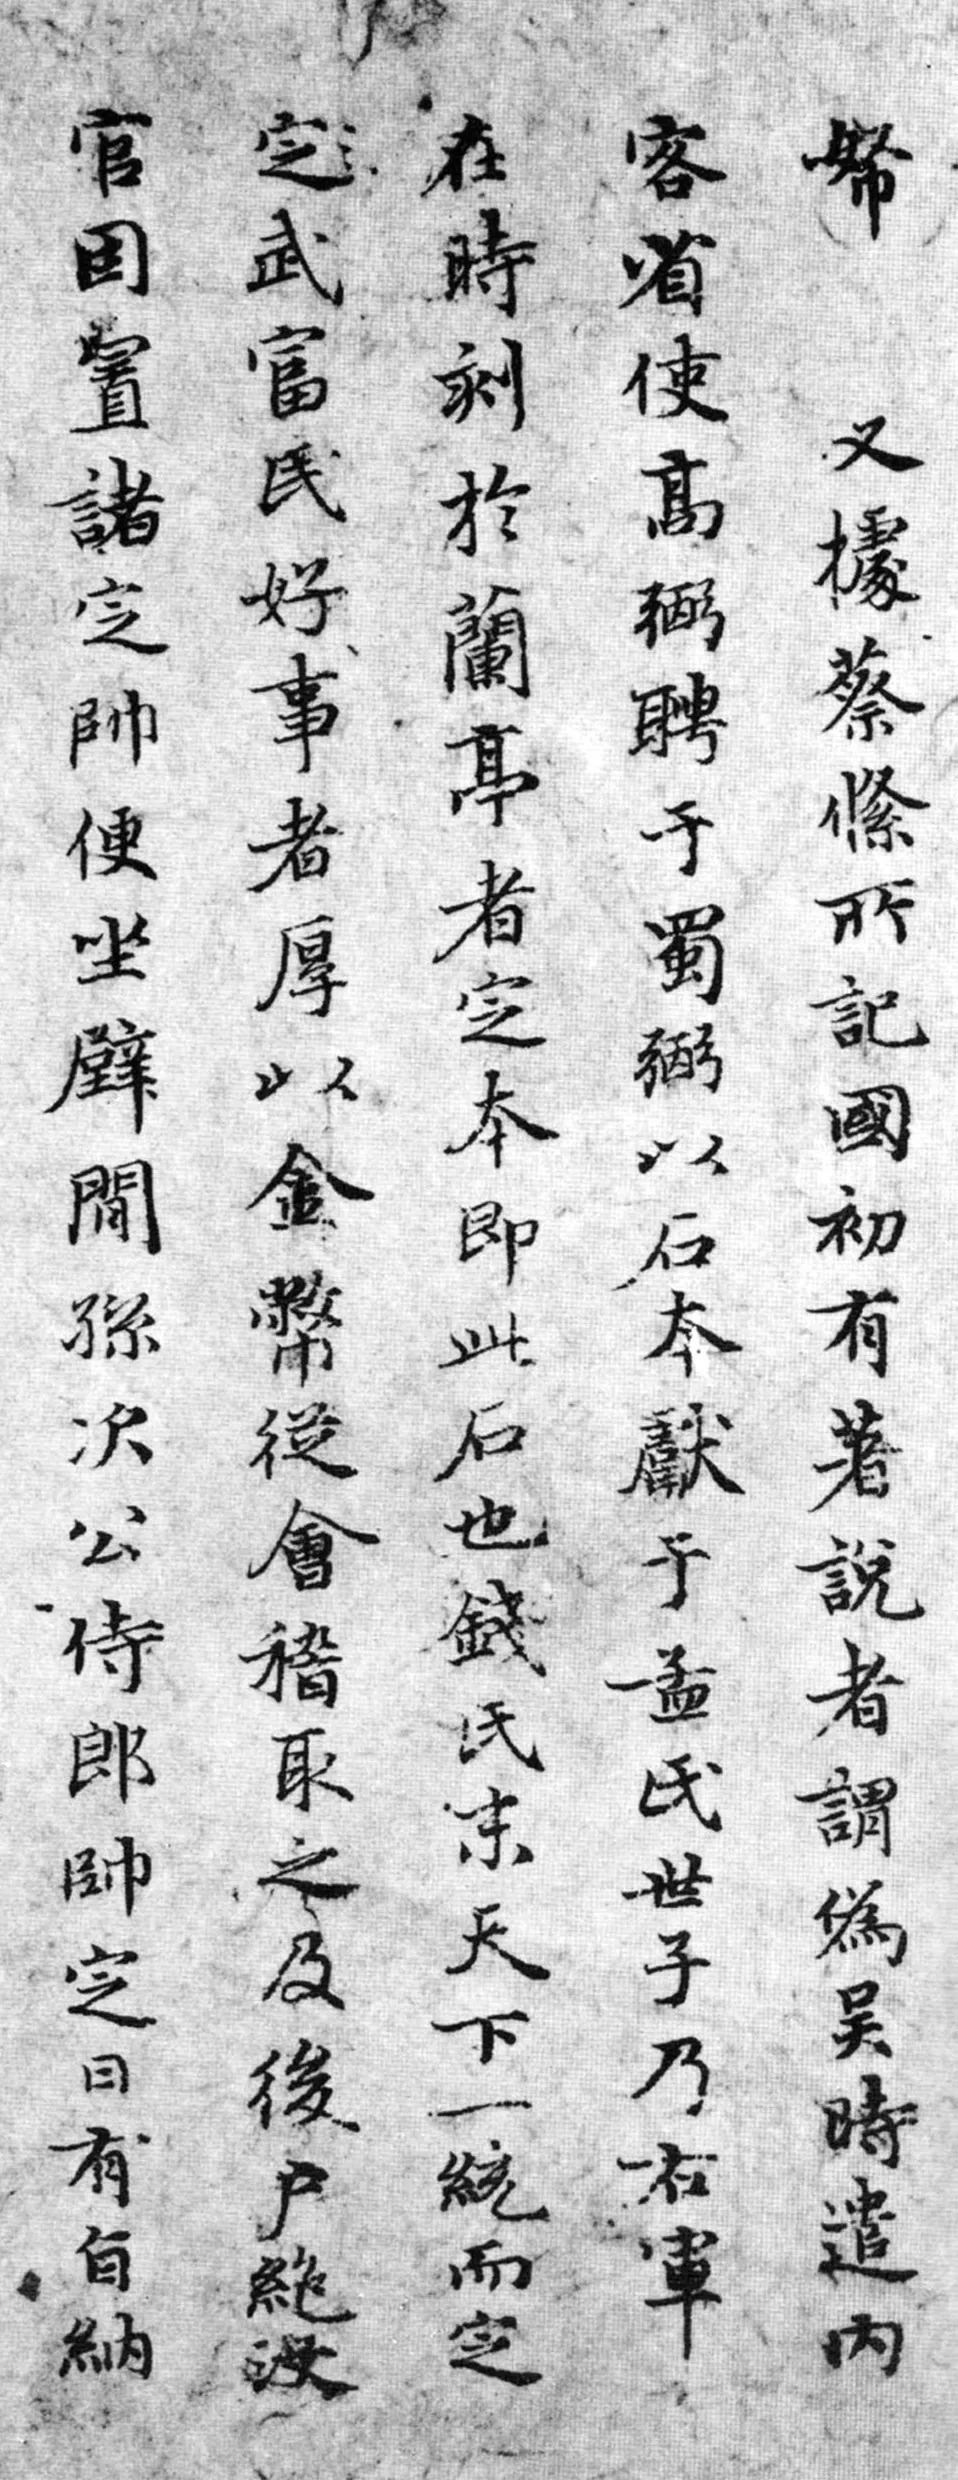 帑　又據蔡絛所記國初有著說者謂為吳時遣內
客省使高弼聘于蜀弼以石本獻于孟氏世子乃右軍
在時刻於蘭亭者定本即此石也錢氏末天下一統而定
定武富民好事者厚以金幣從會稽取之及後戶絕沒
官因置諸定帥便坐壁間孫次公侍郎帥定日有旨納